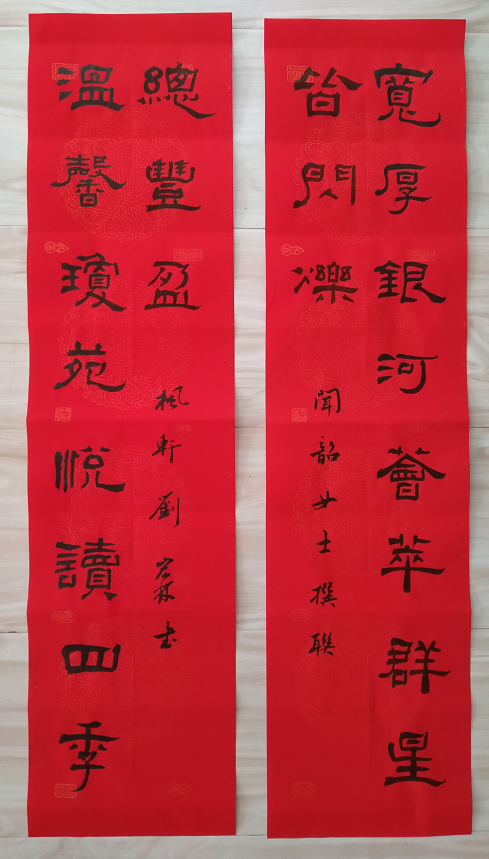 寬厚銀河薈萃群星
皆閃爍
聞韶女士撰聯
溫馨瓊苑悅讀四季
總豐盈
楓軒劉书